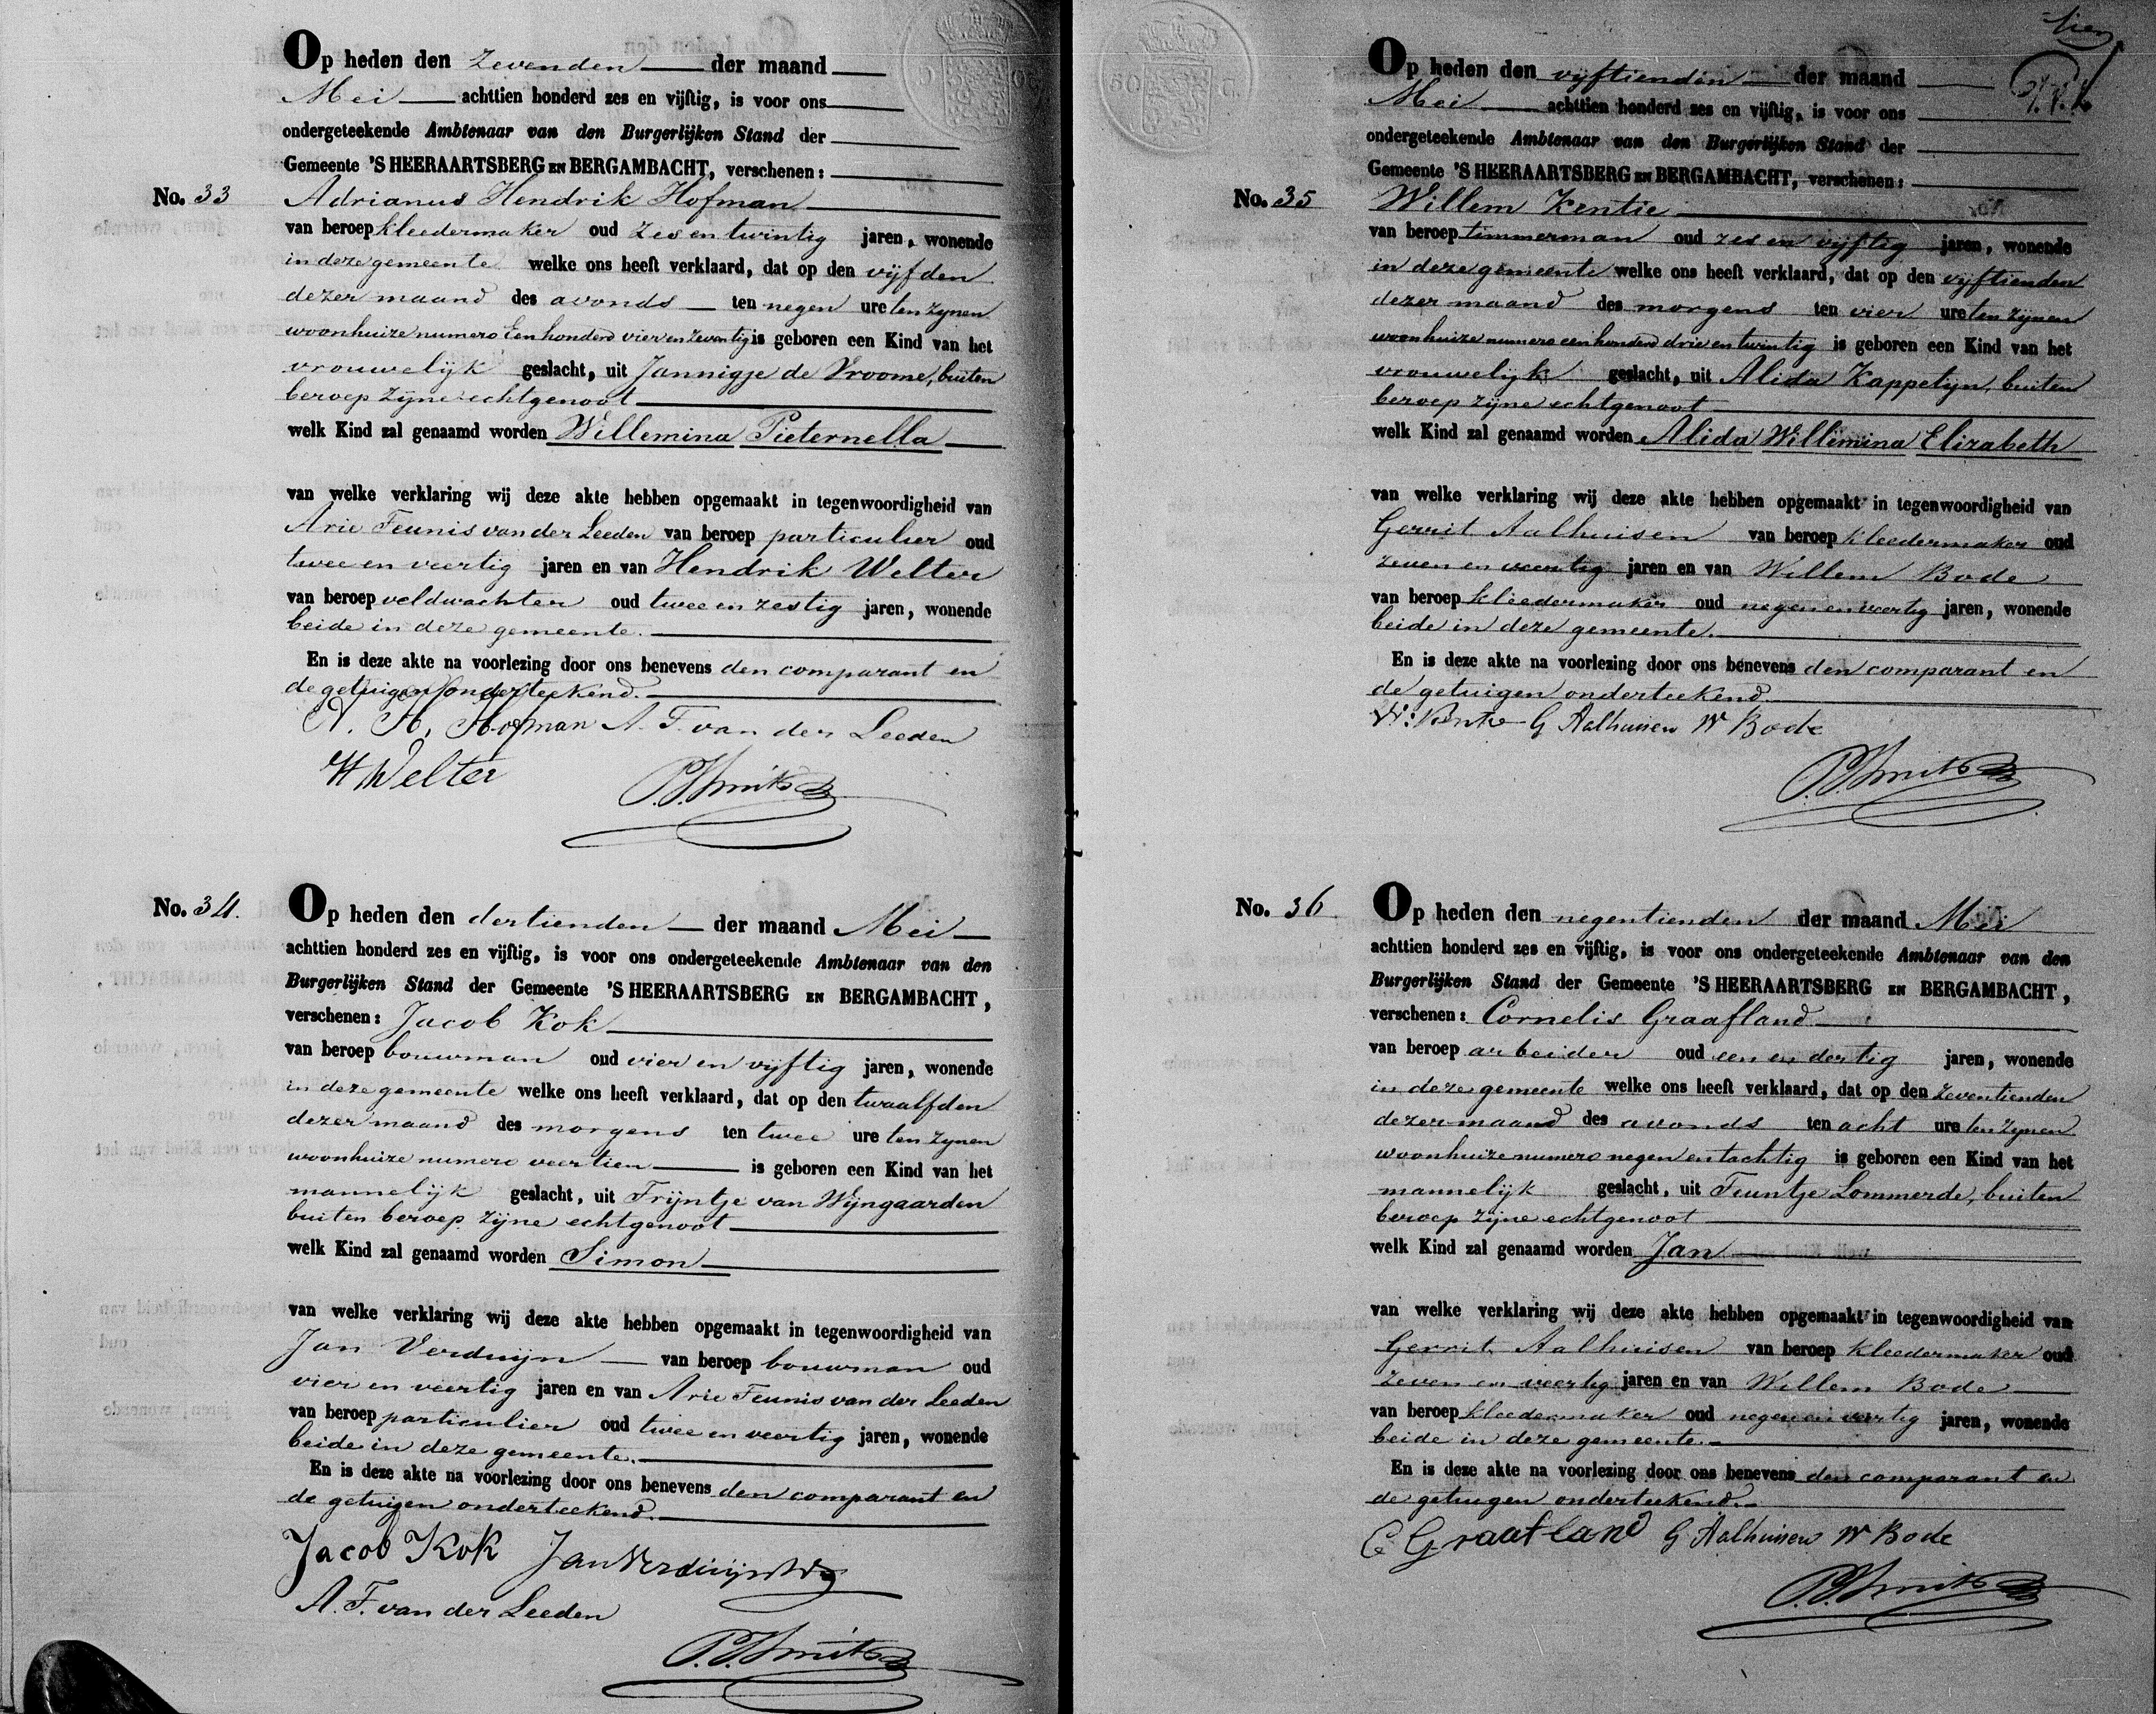 Op heden den zevenden der maand
Mei achttien honderd zes en vijftig, is voor ons
ondergeteekende Ambtenaar van den Burgerlijken Stand der
Gemeente 'S HEERAARTSBERG EN BERGAMBACHT, verschenen:
No. 33 Adrianus Hendrik Hofman
van beroep kleedermaker oud zes en twintig jaren, wonende
in deze gemeente welke ons heeft verklaard, dat op den vijfden
dezer maand des avonds ten negen ure ten zynen
woonhuize numero Een honderd vier en zeventig is geboren een Kind van het
vrouwelijk geslacht, uit Jannigje de Vroome, buiten
beroep zijne echtgenoot
welk Kind zal genaamd worden Willemina Pieternella
van welke verklaring wij deze akte hebben opgemaakt in tegenwoordigheid van
Arie Teunis van der Leeden van beroep particulier oud
twee en veertig jaren en van Hendrik Welter
van beroep veldwachter oud twee en zestig jaren, wonende
beide in deze gemeente.
En is deze akte na voorlezing door ons benevens den comparant en
de getuigen onderteekend.
A. H. Hofman A. T. van der Leeden
H Welter P. J. Smits
No. 34. Op heden den dertienden der maand Mei
achttien honderd zes en vijftig, is voor ons ondergeteekende Ambtenaar van den
Burgerlijken Stand der Gemeente 'S HEERAARTSBERG EN BERGAMBACHT,
verschenen: Jacob Kok
van beroep bouwman oud vier en vijftig jaren, wonende
in deze gemeente welke ons heeft verklaard, dat op den twaalfden
dezer maand des morgens ten twee ure ten zynen
woonhuize numero veertien is geboren een Kind van het
mannelijk geslacht, uit Trijntje van Wijngaarden
buiten beroep zijne echtgenoot
welk Kind zal genaamd worden Simon
van welke verklaring wij deze akte hebben opgemaakt in tegenwoordigheid van
Jan Verduijn van beroep bouwman oud
vier en veertig jaren en van Arie Teunis van der Leeden
van beroep particulier oud twee en veertig jaren, wonende
beide in deze gemeente.
En is deze akte na voorlezing door ons benevens den comparant en
de getuigen onderteekend.
Jacob Kok Jan Verduijn
A. T. van der Leeden
P. J. Smits
tien
Op heden den vijftienden der maand
Mei achttien honderd zes en vijftig, is voor ons
ondergeteekende Ambtenaar van den Burgerlijken Stand der
Gemeente 'S HEERAARTSBERG EN BERGAMBACHT, verschenen:
No. 35 Willem Kentie
van beroep timmerman oud zes en vijftig jaren, wonende
in deze gemeente welke ons heeft verklaard, dat op den vijftienden
dezer maand des morgens ten vier ure ten zijnen
woonhuize numero een honderd drie en twintig is geboren een Kind van het
vrouwelijk geslacht, uit Alida Kappetijn, buiten
beroep zijne echtgenoot
welk Kind zal genaamd worden Alida Willemina Elizabeth
van welke verklaring wij deze akte hebben opgemaakt in tegenwoordigheid van
Gerrit Aalhuisen van beroep kleedermaker oud
zeven en veertig jaren en van Willem Bode
van beroep kleedermaker oud negen en veertig jaren, wonende
beide in deze gemeente.
En is deze akte na voorlezing door ons benevens den comparant en
de getuigen onderteekend.
W: Kentie G Aalhuisen W Bode
P. J. Smits
No. 36 Op heden den negentienden der maand Mei
achttien honderd zes en vijftig, is voor ons ondergeteekende Ambtenaar van den
Burgerlijken Stand der Gemeente 'S HEERAARTSBERG EN BERGAMBACHT,
verschenen: Cornelis Graafland
van beroep arbeider oud een en dertig jaren, wonende
in deze gemeente welke ons heeft verklaard, dat op den zeventienden
dezer maand des avonds ten acht ure ten zynen
woonhuize numero negen en tachtig is geboren een Kind van het
mannelijk geslacht, uit Teuntje Lommerde, buiten
beroep zijne echtgenoot
welk Kind zal genaamd worden Jan
van welke verklaring wij deze akte hebben opgemaakt in tegenwoordigheid van
Gerrit Aalhuisen van beroep kleedermaker oud
zeven en veertig jaren en van Willem Bode
van beroep kleedermaker oud negen en veertig jaren, wonende
beide in deze gemeente.
En is deze akte na voorlezing door ons benevens den comparant en
de getuigen onderteekend.
C Graafland G Aalhuisen W Bode
P. J. Smits